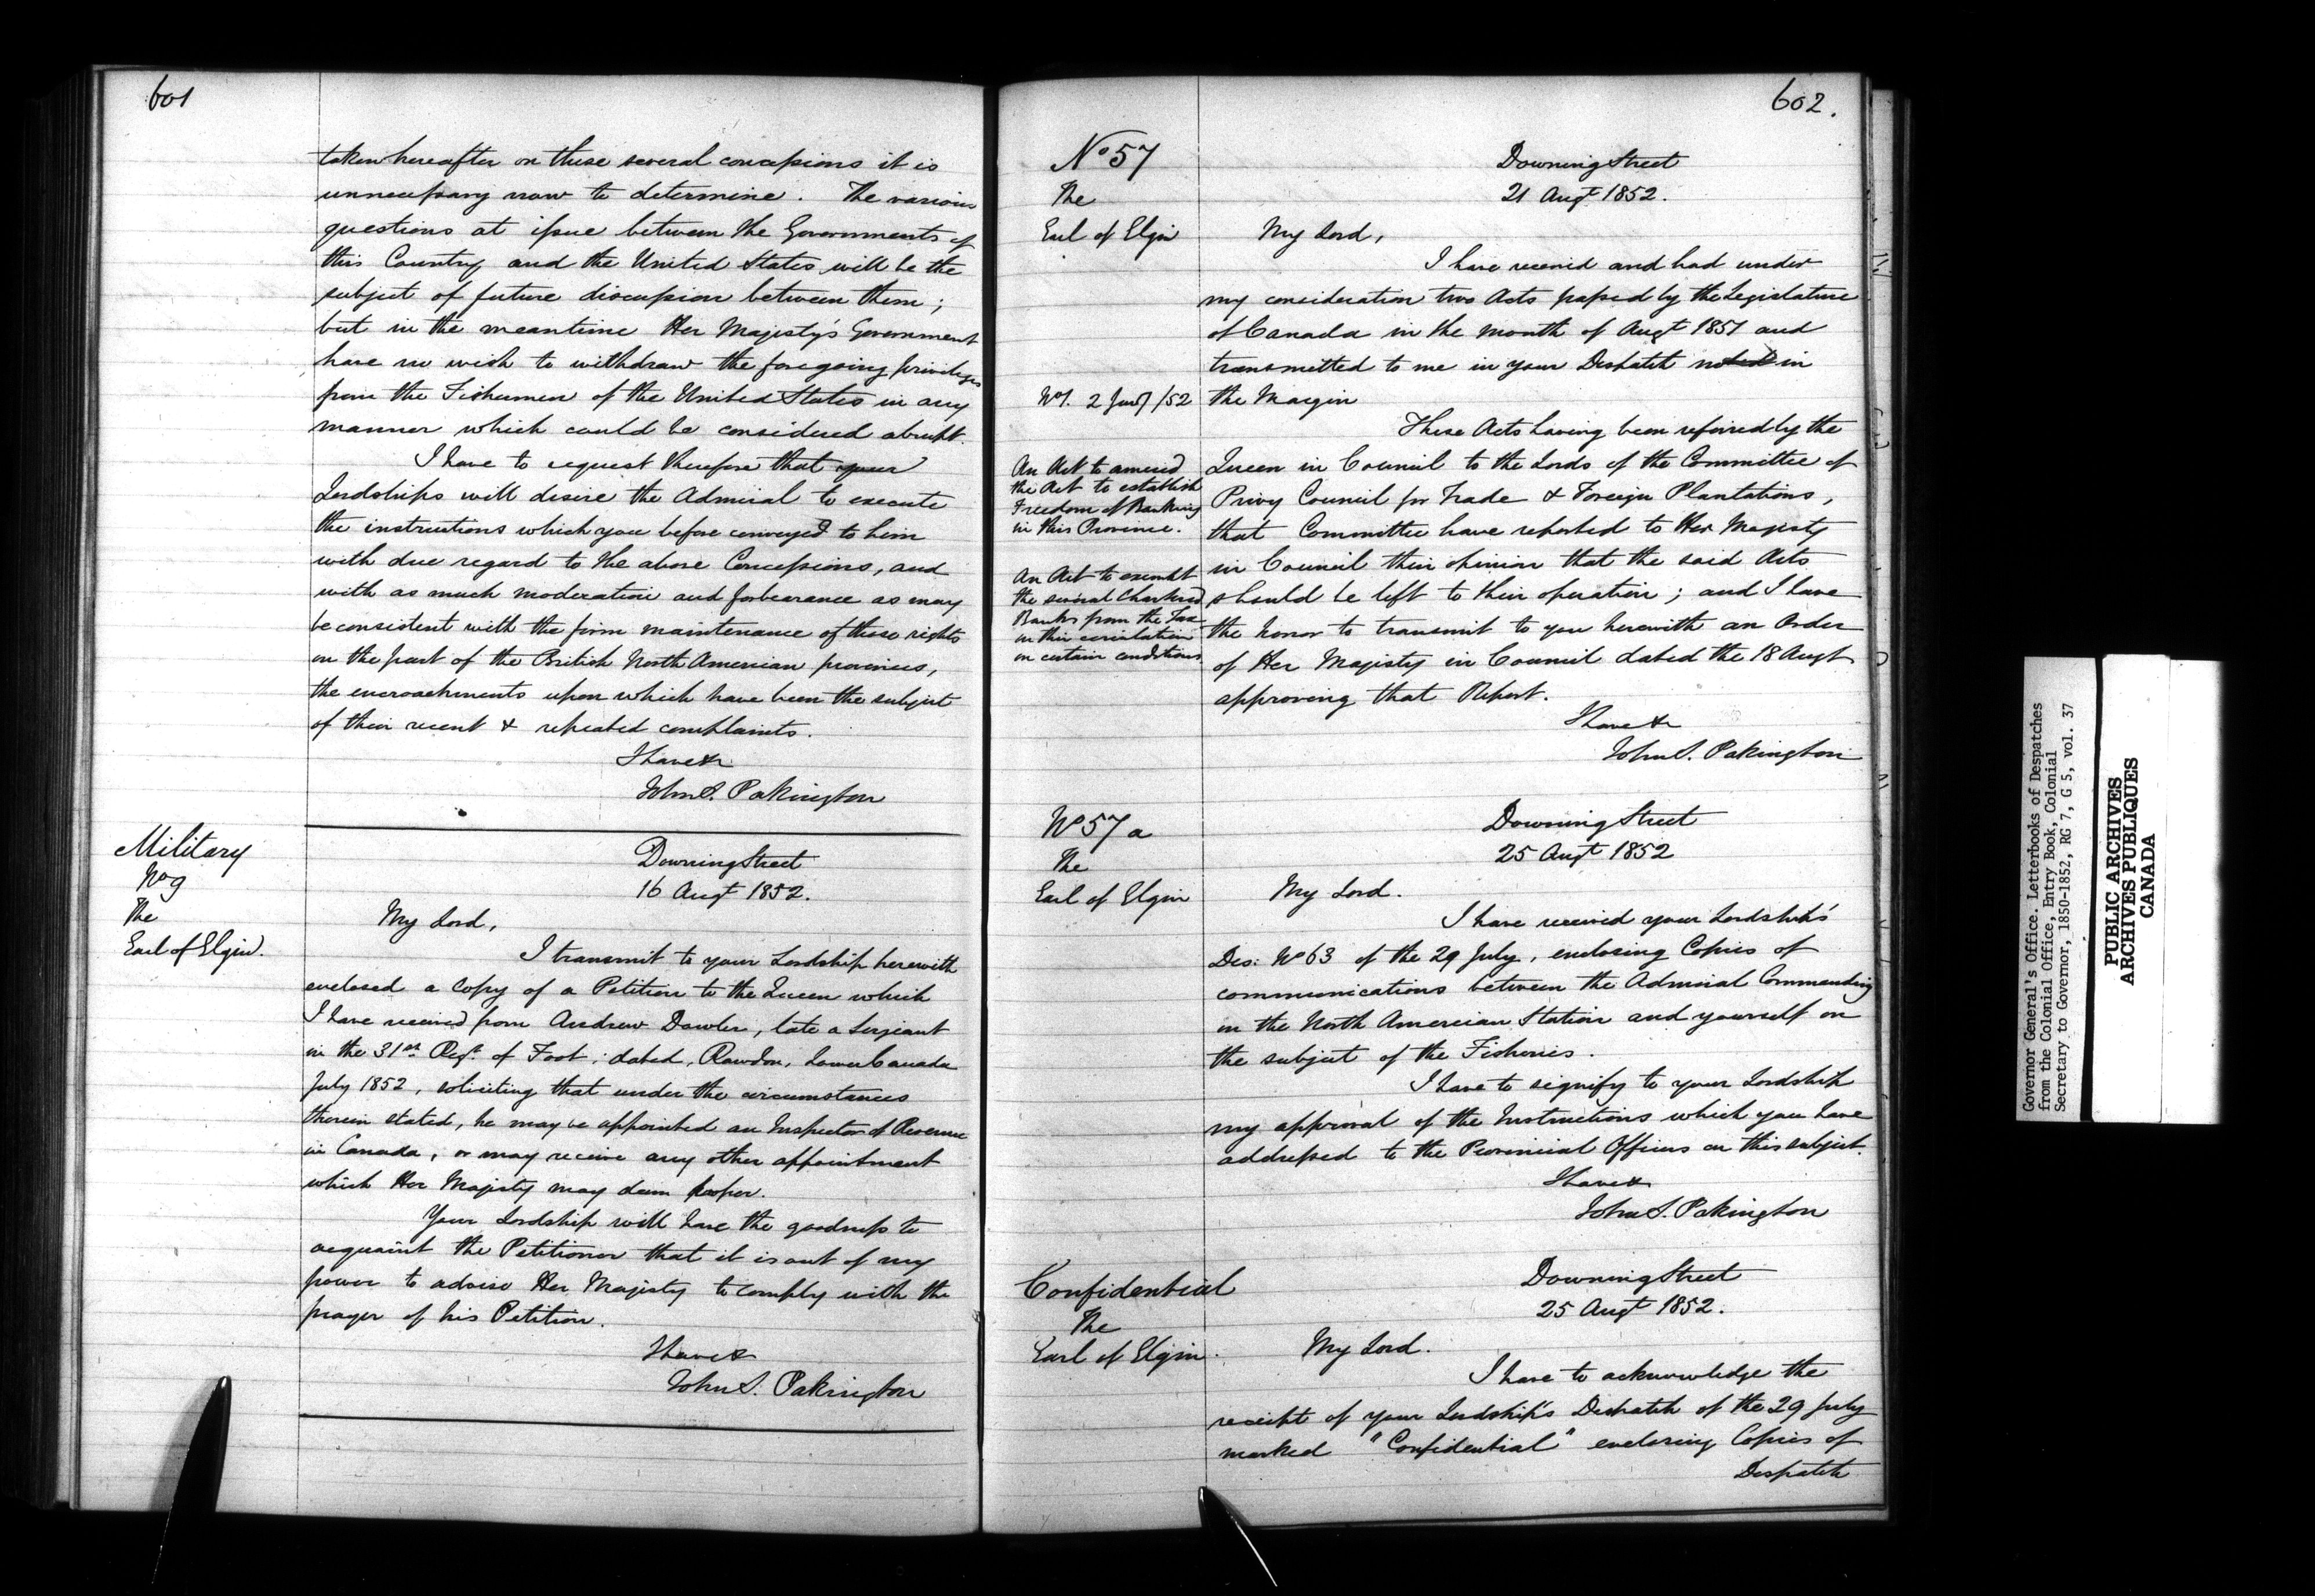 601
taken hereafter on these several concessions it is
unnecessary now to determine. The various
questions at issue between the Governments of
this Country and the United States will be the
subject of future discussion between them;
but in the meantime Her Majesty's Government
have no wish to withdraw the foregoing privileges
from the Fishermen of the United States in any
manner which could be considered abrupt.
I have to request therefore that your
Lordships will desire the Admiral to execute
the instructions which you before conveyed to him
with due regard to the above Concessions, and
with as much moderation and forbearance as may
be consistent with the firm maintenance of those rights
on the part of the British North American provinces,
the encroachments upon which have been the subject
of their recent & repeated complaints.
I have &c
John S. Pakington
Military
No 9
The
Earl of Elgin.
Downing Street
16 Augt 1852.
My Lord,
I transmit to your Lordship herewith
enclosed a Copy of a Petition to the Queen which
I have received from Andrew Dowler, late a Serjeant
in the 31st Regt of Foot; dated, Rawdon, Lower Canada
July 1852, soliciting that under the circumstances
therein stated, he may be appointed an Inspector of Revenue
in Canada, or may receive any other appointment
which Her Majesty may deem proper.
Your Lordship will have the goodness to
acquaint the Petitioner that it is out of my
power to advise Her Majesty to comply with the
prayer of his Petition.
I have &
John S. Pakington
602.
No 57
The
Earl of Elgin
Downing Street
21 Augt 1852.
My Lord,
I have received and had under
my consideration two Acts passed by the Legislature
of Canada in the month of Augt 1851 and
transmitted to me in your Despatch noted in
No 1. 2 Jany /52
the Margin
These Acts having been referred by the
An Act to amend
the Act to establish
Freedom of Banking
in this Province.
Queen in Council to the Lords of the Committee of
Privy Council for Trade & Foreign Plantations,
that Committee have reported to Her Majesty
in Council their opinion that the said Acts
An Act to exempt
the several Chartered
Banks from the Tax
on their circulation
on certain conditions
should be left to their operation; and I have
the honor to transmit to you herewith an Order
of Her Majesty in Council dated the 18 Augt
approving that Report.
I have &c
John S. Pakington
No 57 a
The
Earl of Elgin
Downing Street
25 Augt 1852
My Lord.
I have received your Lordship's
Des: No 63 of the 29 July, enclosing Copies of
communications between the Admiral Commanding
on the North American Station and yourself on
the subject of the Fisheries.
I have to signify to your Lordship
my approval of the Instructions which you have
addressed to the Provincial Officers on this subject.
I have &
John S. Pakington
Confidential
The
Earl of Elgin.
Downing Street
25 Augt 1852.
My Lord.
I have to acknowledge the
receipt of your Lordship's Despatch of the 29 July
marked "Confidential" enclosing Copies of
Despatch
Governor General's Office. Letterbooks of Despatches
from the Colonial Office, Entry Book, Colonial
Secretary to Governor, 1850-1852, RG 7, G 5, vol. 37
PUBLIC ARCHIVES
ARCHIVES PUBLIQUES
CANADA